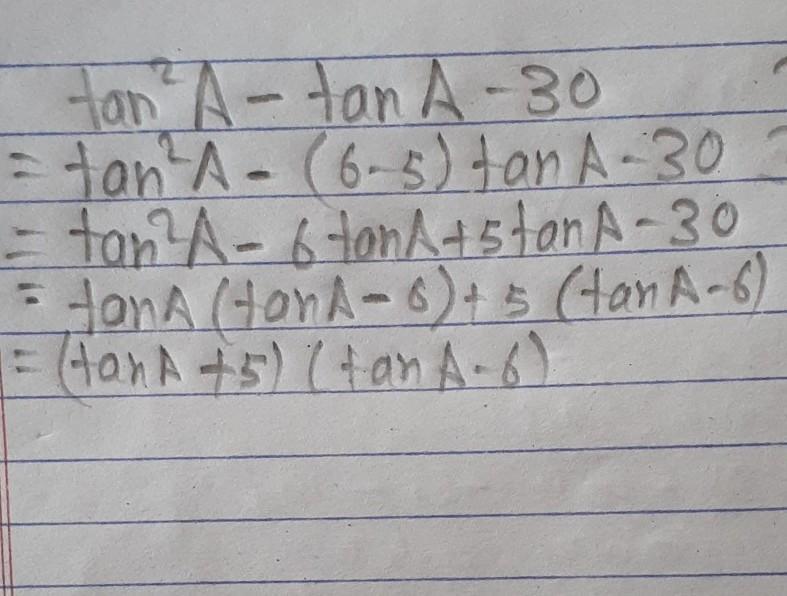 tan²A - tan A - 30
= tan²A - (6-5) tan A - 30
= tan²A - 6 tan A + 5 tan A - 30
= tan A (tan A - 6) + 5 (tan A - 6)
= (tan A + 5) (tan A - 6)